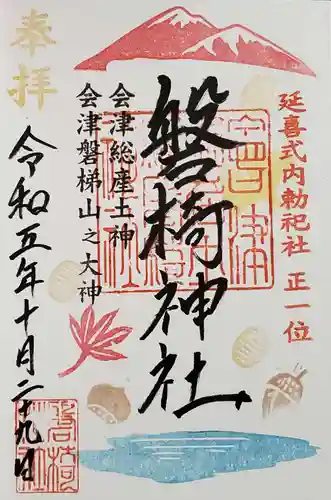 延喜式内勅祀社 正一位
磐椅神社
会津総産土神
会津磐梯山之大神
奉拝
令和五年十月二十九日